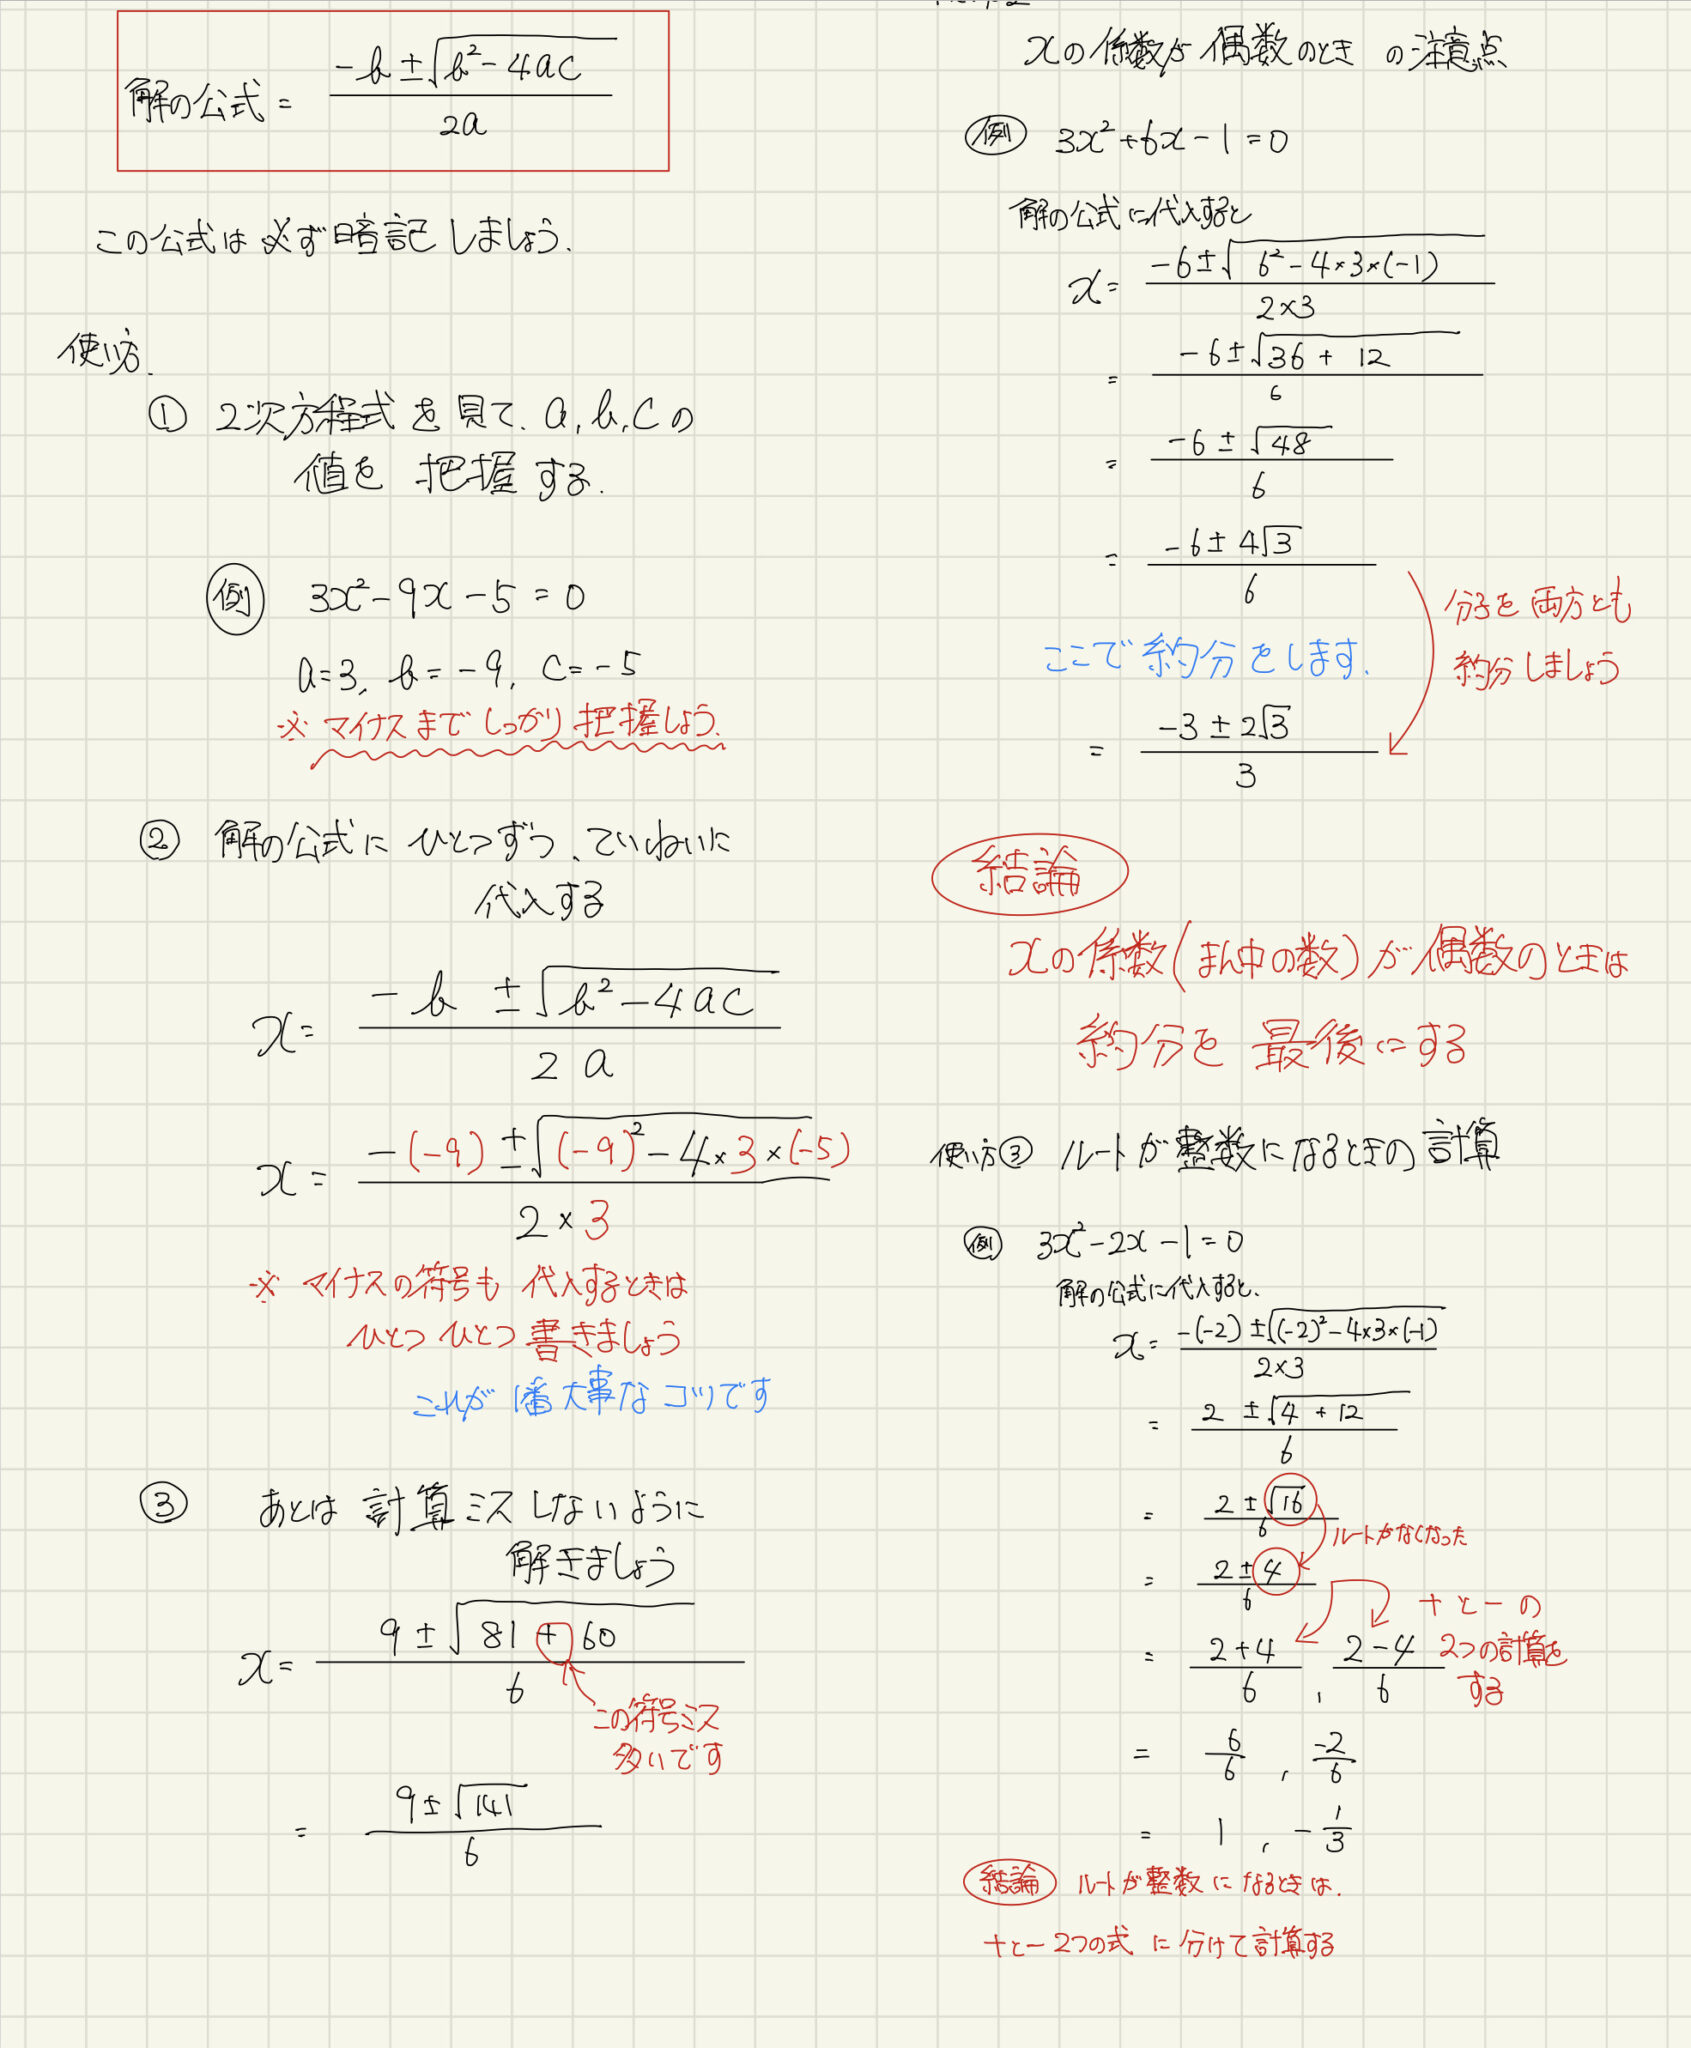 解の公式 = (-b±√(b²-4ac))/(2a)
この公式は必ず暗記しましょう.
使い方.
① 2次方程式を見て、a, b, cの
値を把握する.
例 3x²-9x-5=0
a=3, b=-9, c=-5
※ マイナスまでしっかり把握しよう.
② 解の公式にひとつずつ、ていねいに
代入する
x= (-b ±√(b²-4ac))/(2a)
x= (-(-9)±√((-9)²-4×3×(-5)))/(2×3)
※ マイナスの符号も代入するときは
ひとつひとつ書きましょう
これが1番大事なコツです
③ あとは計算ミスしないように
解きましょう
x= (9±√(81+60))/6
この符号ミス
多いです
= (9±√141)/6
xの係数が偶数のときの注意点
例 3x²+6x-1=0
解の公式に代入すると
x= (-6±√(6²-4×3×(-1)))/(2×3)
= (-6±√(36+12))/6
= (-6±√48)/6
= (-6±4√3)/6
分子を両方とも
約分しましょう
ここで約分をします.
= (-3±2√3)/3
結論
xの係数(まん中の数)が偶数のときは
約分を最後にする
使い方③ ルートが整数になるときの計算
例 3x²-2x-1=0
解の公式に代入すると.
x= (-(-2)±√((-2)²-4×3×(-1)))/(2×3)
= (2±√(4+12))/6
= (2±√16)/6
ルートがなくなった
= (2±4)/6
= (2+4)/6 , (2-4)/6
+と-の
2つの計算を
する
= 6/6 , -2/6
= 1 , -1/3
結論 ルートが整数になるときは.
+と-2つの式に分けて計算する